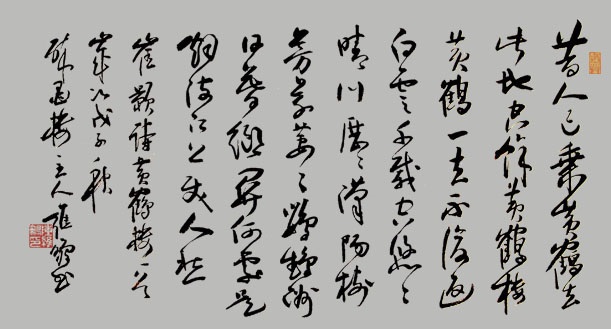 昔人已乘黄鹤去
此地空馀黄鹤楼
黄鹤一去不复返
白云千载空悠〻
晴川历〻汉阳树
芳草萋〻鹦鹉洲
日暮乡关何处是
烟波江上使人愁
崔颢诗黄鹤楼一首
岁次戊子秋
楼主人
书